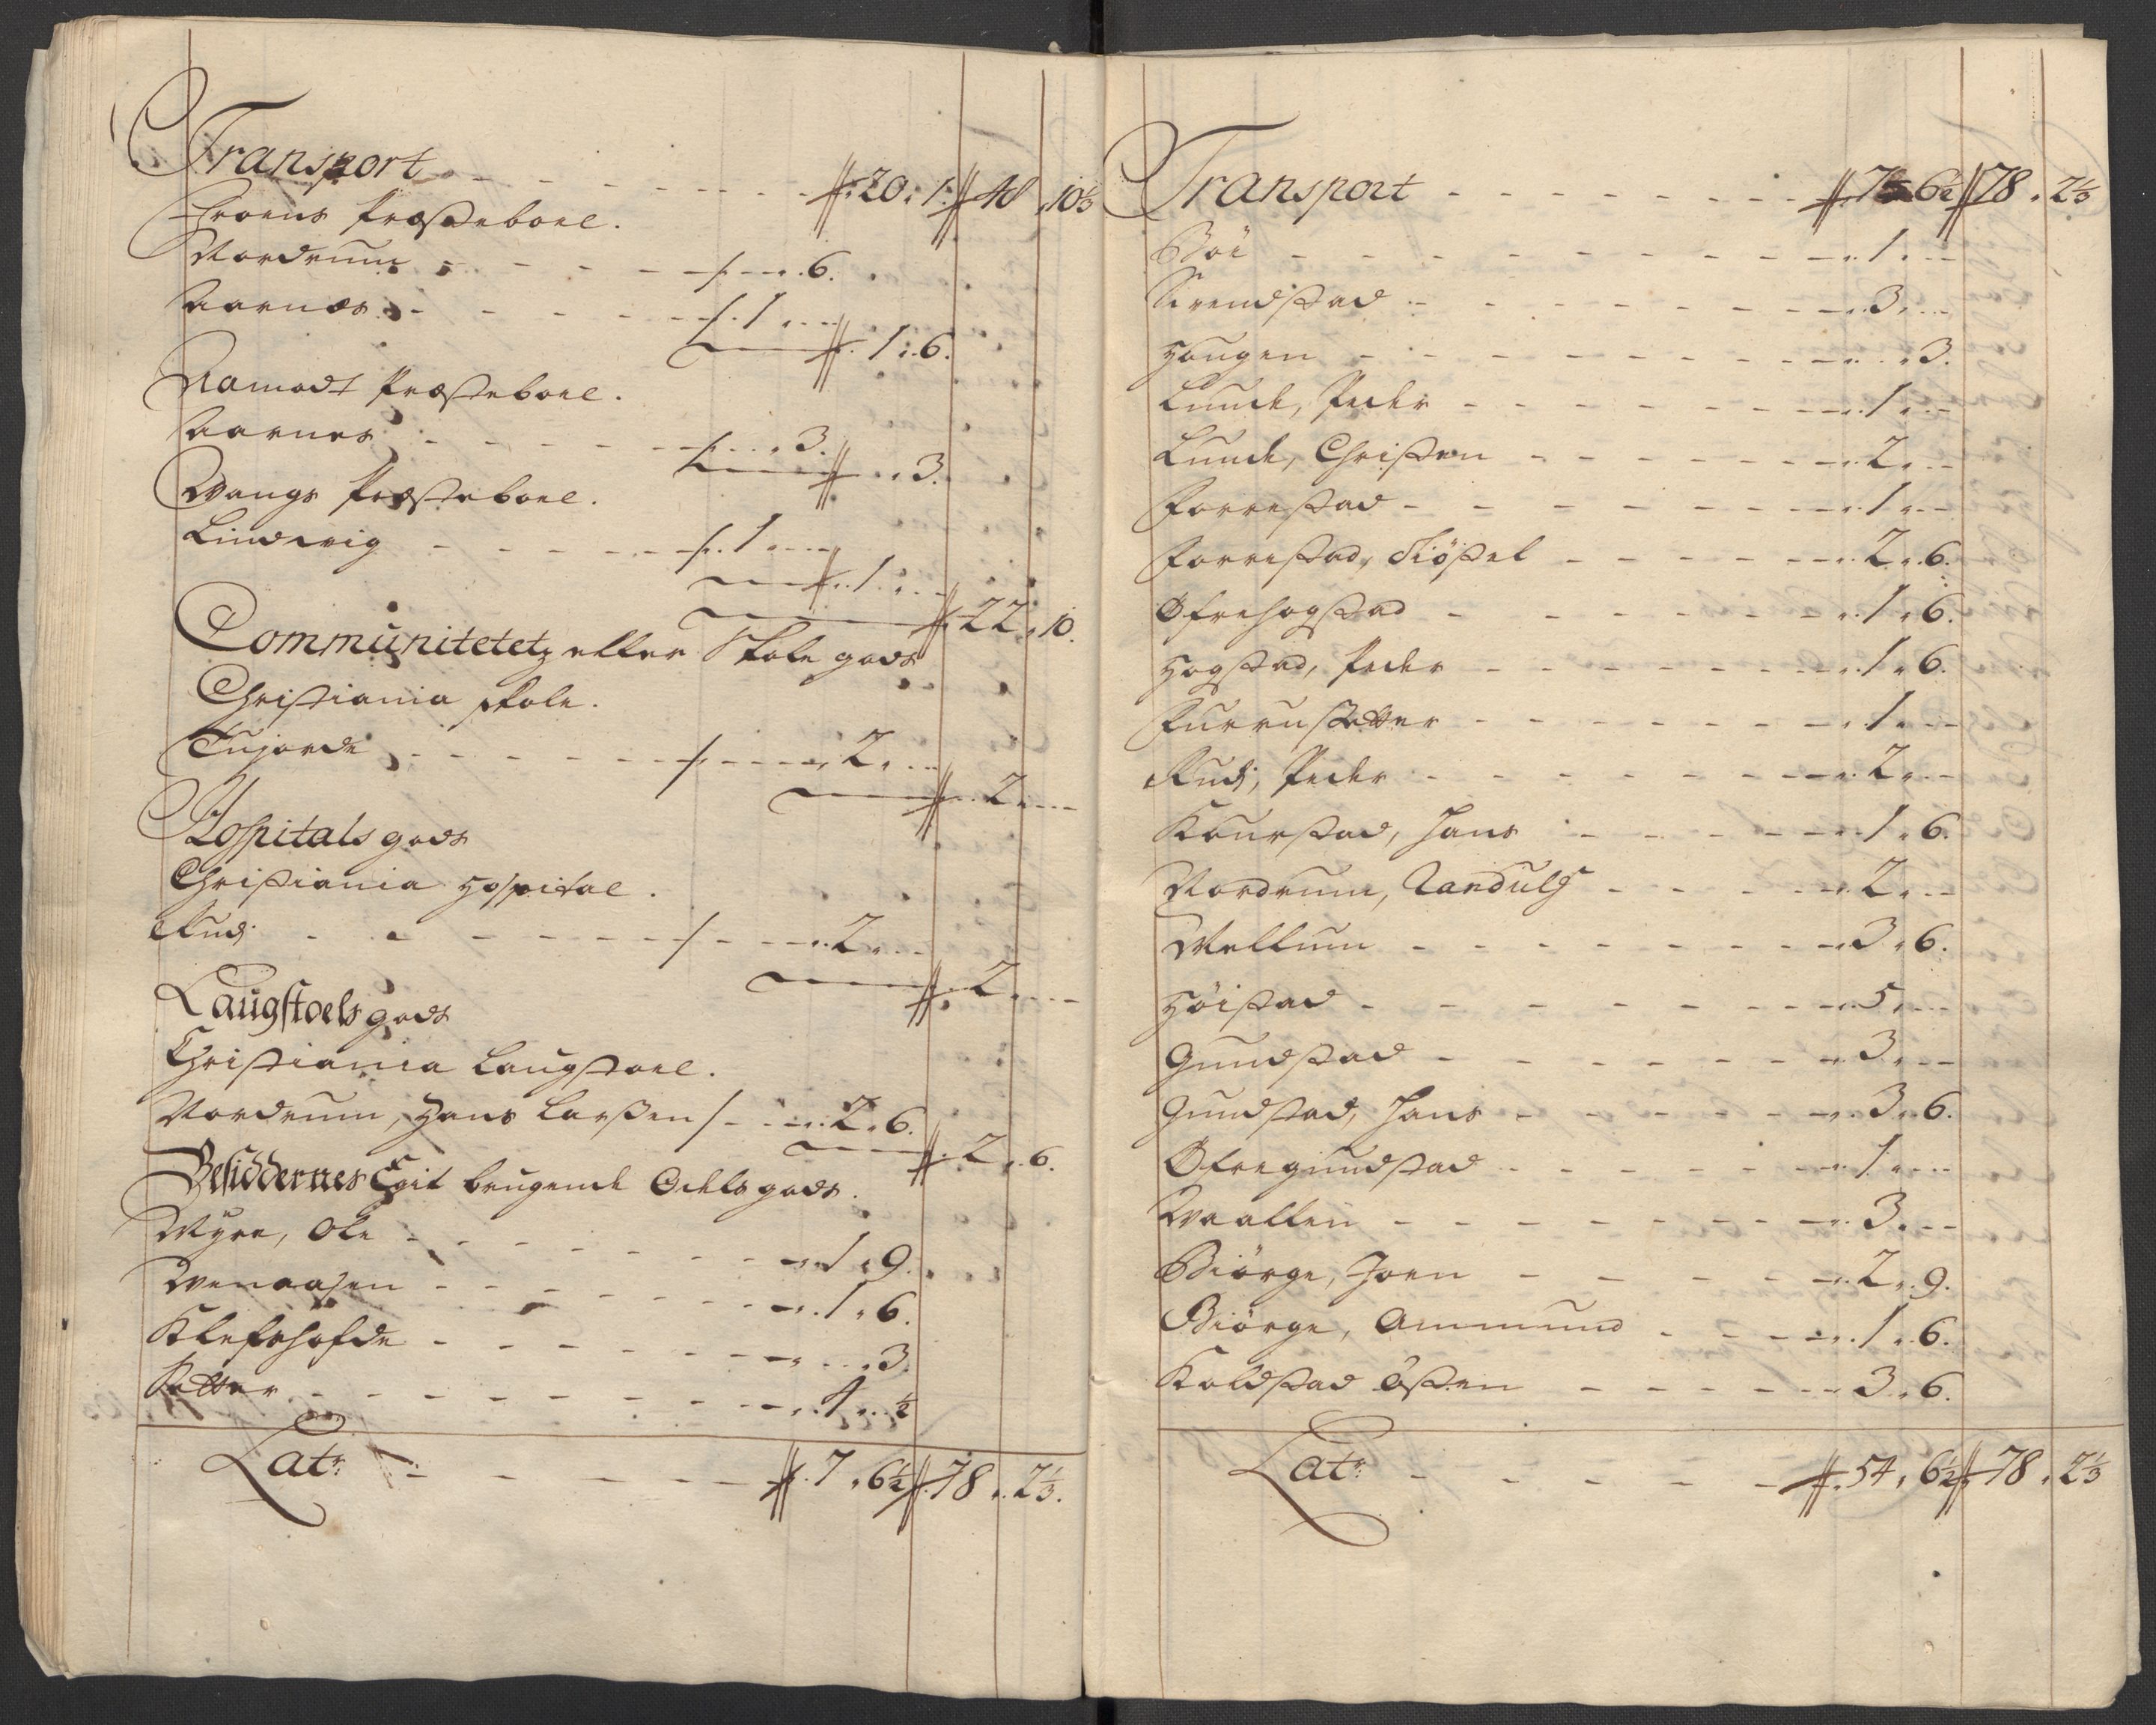 Transport - - - - - - - - - ₶ 20 " 1 ₶ 48 " 10⅓
Froens Præsteboel.
Nordrum - - - - - /: - - " 6.
Aarnæs - - - - - /: 1 " - -
₶ 1 " 6.
Aamodt Præsteboel.
Aarnes - - - - - /: - - " 3.
₶ - " 3.
Wangs Præsteboel.
Lindwig - - - - - /: 1 " - -
₶ 1 " - -
₶ 22 " 10.
Communitetetz eller Skole gods
Christiania skole.
Tujorde - - - - - /: - - - 2 " - -
₶ 2 " - -
Hospitals gods
Christiania Hospital.
Rudj - - - - - - / - - - 2 " - -
₶ 2 " - -
Laugstoels gods
Christiania Laugstoel.
Nordrum, Hans Larßen / - - - 2 " 6.
₶ 2 " 6.
Besiddernes Egit brugende Odels gods.
Myre, Ole - - - - - - - 1 " 9.
Wenaasen - - - - - - - 1 " 6.
Klefshofde - - - - - - - - " 3.
Sætter - - - - - - - - 4 " - ½
Latr: - - - - - ₶ 7 " 6½ ₶ 78 " 2⅓.
Transport - - - - - - - ₶ 7 " 6½ ₶ 78 " 2⅓
Böe - - - - - - - - - " 1 " - -
Sirendstad - - - - - - - " 3 " - -
Haugen - - - - - - - - - " 3.
Lunde, Peder - - - - - - - " 1 " - -
Lunde, Christen - - - - - - " 2 " - -
Forrestad - - - - - - - - " 1 " - -
Forrestad, Siöstel - - - - - " 2 " 6.
Ofrehogstad - - - - - - " 1 " 6.
Hogstad, Peder - - - - - - " 1 " 6.
Furrusætter - - - - - - - " 1 " - -
Rudj, Peder - - - - - - - " 2 " - -
Kaurstad, Hans - - - - - " 1 " 6.
Nordrum, Randulf - - - - " 2 " - -
Mellum - - - - - - - - " 3 " 6.
Höistad - - - - - - - - " 5 " - -
Gundstad - - - - - - - " 3 " - -
Gundstad, Hans - - - - - - " 3 " 6.
Ofregundstad - - - - - - " 1 " - -
Waallen - - - - - - - - " 3 " - -
Biörge, Joen - - - - - " 2 " 9.
Biörge, Ammund - - - - " 1 " 6.
Koldstad Östen - - - - - 3 " 6.
Latr: - - - - - - ₶ 54 " 6½ ₶ 78 " 2⅓